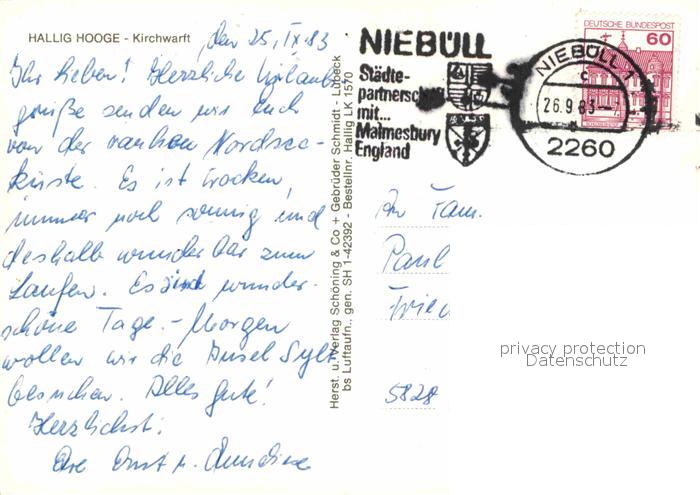 HALLIG HOOGE - Kirchwarft
den 25. IX. 83
Ihr Lieben! Herzliche Urlaubs-
grüße senden wir Euch
von der rauhen Nordsee-
küste. Es ist trocken,
immer noch sonnig und
deshalb wunderbar zum
Laufen. Es sind wunder-
schöne Tage. - Morgen
wollen wir die Insel Sylt
besuchen. Alles gute!
Herzlichst:
Ernst u.
Herst. u. Verlag Schöning & Co + Gebrüder Schmidt - Lübeck
bs Luftaufn., gen. SH 1-42392 - Bestellnr. Hallig LK 1570
NIEBÜLL
Städte-
partnerschaft
mit...
Malmesbury
England
DEUTSCHE BUNDESPOST
60
NIEBÜLL 1
c
26.9.83
2260
An Fam.
Paul
5828
privacy protection
Datenschutz